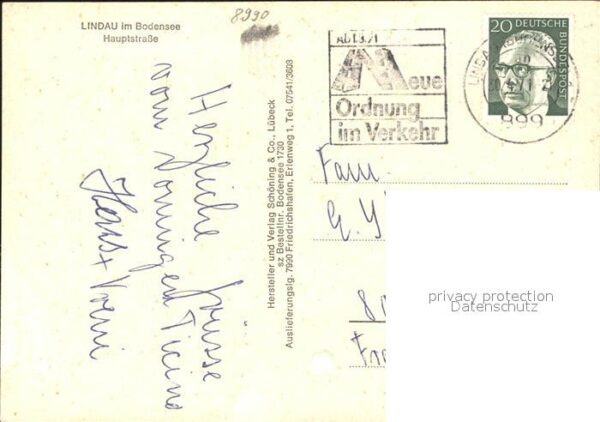 LINDAU im Bodensee
Hauptstraße
8990
Herzliche Grüsse
vom sonnigen Ticino
Hans + Vreni
Hersteller und Verlag Schöning & Co., Lübeck
sz Bestellnr. Bodensee 1730
Auslieferungslg. 7990 Friedrichshafen, Erlenweg 1, Tel. 07541/3603
AB 1.3.71
Neue
Ordnung
im Verkehr
20 DEUTSCHE
BUNDESPOST
899
Fam
G.
privacy protection
Datenschutz